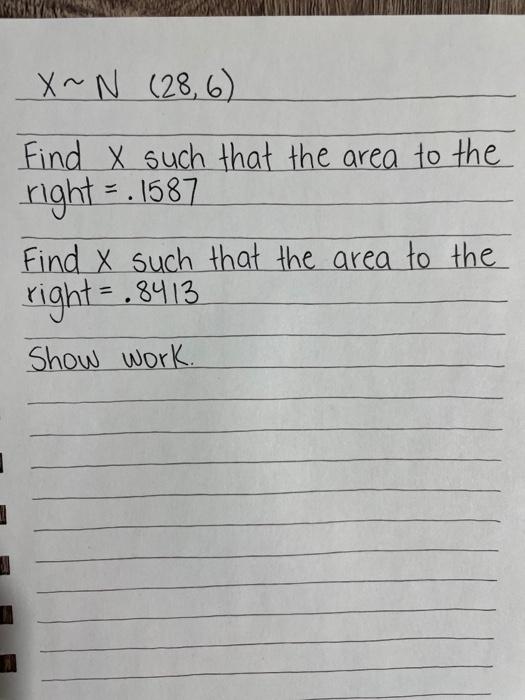 X ~ N (28,6)
Find X such that the area to the
right = .1587
Find X such that the area to the
right = .8413
Show work.